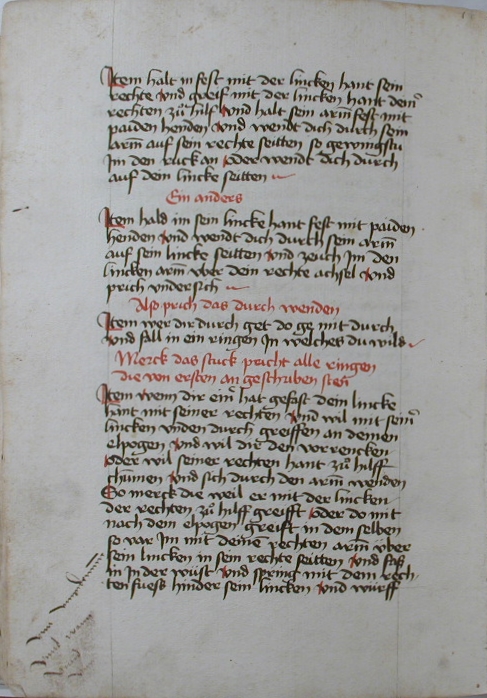 Item halt in fest mit der lincken hant sein
rechte vnd greif mit der lincken hant dein͂
rechten zů hilf vnd halt sein arm fest mit
paiden henden vnd wendt dich durch sein
arm auf sein rechte seitten so gewingstu
Im den ruck an oder wendt dich durch
auf dein lincke seitten
Ein anders
Item hald im sein lincke hant fest mit paiden
henden vnd wendt dich durch sein arm
auf sein lincke seitten vnd zeuch Im den
lincken arm vber dein rechte achsel vnd
prich vndersich
Also prich das durch wenden
Item wer dir durch get do ge mit durch
vnd fall in ein ringen In welches du wild
Merck das stuck pricht alle ringen
die von ersten an geschriben sten
Item wenn dir ein͂ hat gefast dein lincke
hant mit seiner rechten vnd wil mit sein͂
lincken vnden durch greiffen an deinen
elpogen vnd wil dir den vorrencken
oder wil seiner rechten hant zů hilff
chümen vnd sich durch den arm wenden
So merck die weil er mit der lincken
der rechten zů hilff greifft oder do mit
nach dem elpogen greift in dem selben
so var im mit deine rechten arm vber
sein lincken in sein rechte seitten vnd
in In der prüst vnd spring mit dem rech
ten fuess hinder sein lincken vnd würff